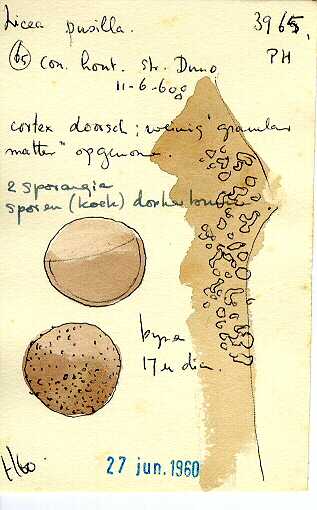 Licea pusilla. 3965,
65 con. hout. str. Duno PH
11-6-60
cortex doorsch; weinig "granular
matter" opgenom.
2 sporangia
sporen (koek) donker bruin
bijna
17 µ dia.
H/60
27 jun. 1960